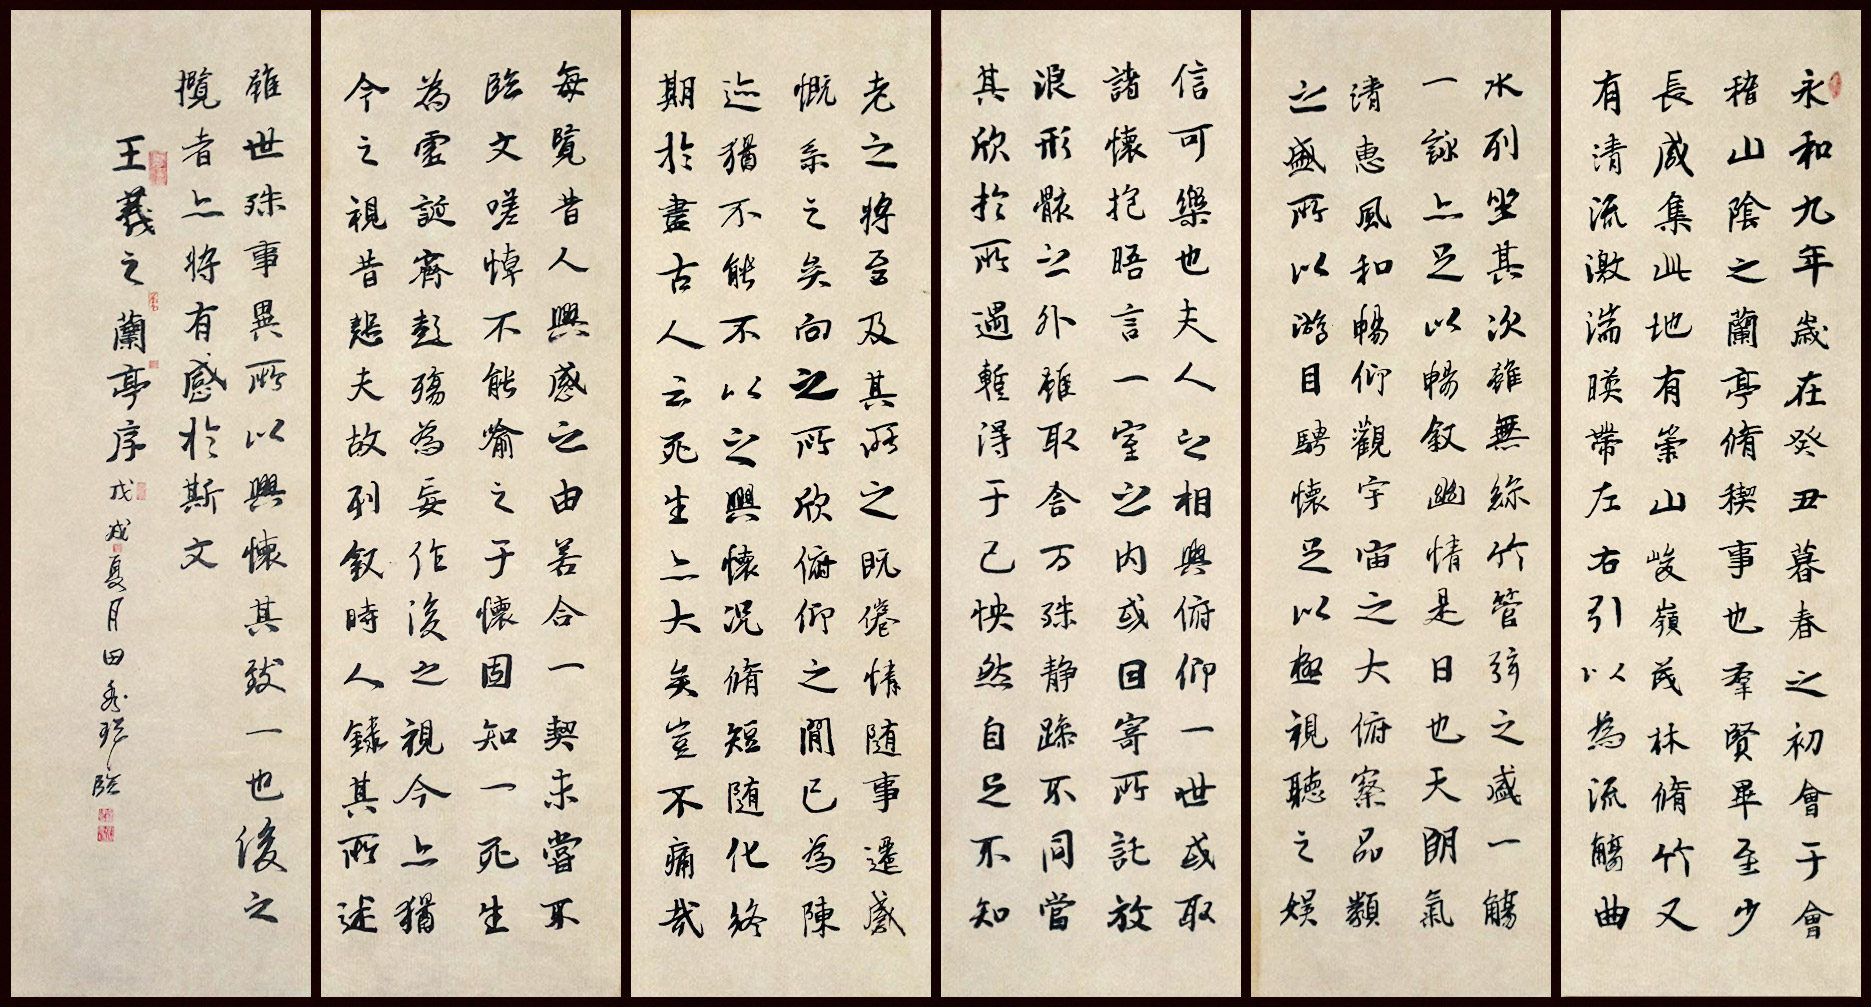 永和九年歲在癸丑暮春之初會于會
稽山陰之蘭亭脩稧事也羣賢畢至少
長咸集此地有崇山峻嶺茂林脩竹又
有清流激湍暎帶左右引以為流觴曲
水列坐其次雖無絲竹管弦之盛一觴
一詠亦足以暢敘幽情是日也天朗氣
清惠風和暢仰觀宇宙之大俯察品類
之盛所以游目騁懷足以極視聽之娛
信可樂也夫人之相與俯仰一世或取
諸懷抱晤言一室之內或因寄所託放
浪形骸之外雖取舍万殊静躁不同當
其欣於所遇暫得于己怏然自足不知
老之將至及其所之既倦情随事遷感
慨系之矣向之所欣俯仰之閒已為陳
迹猶不能不以之興懷況脩短随化終
期於盡古人云死生亦大矣豈不痛哉
每覽昔人興感之由若合一契未嘗不
臨文嗟悼不能喻之于懷固知一死生
為虛誕齊彭殤為妄作後之視今亦猶
今之視昔悲夫故列敘時人錄其所述
雖世殊事異所以興懷其致一也後之
攬者亦將有感於斯文
王羲之蘭亭序戊戌夏月田秀臨